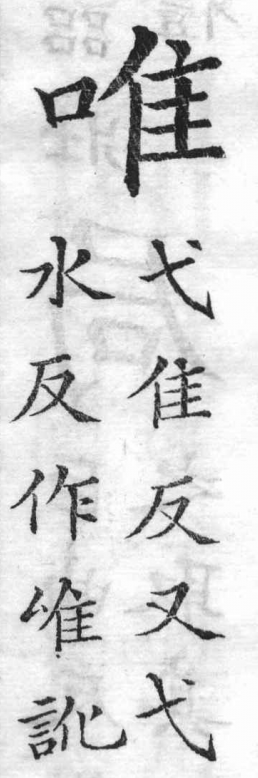 唯
弋隹反又弋
水反作訛